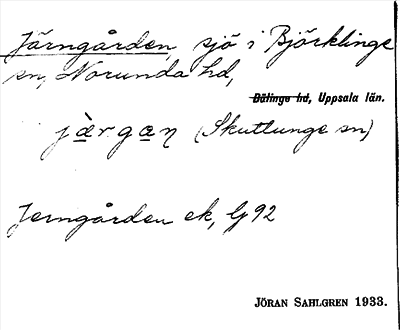 Järngården, sjö i Björklinge
sn, Norunda hd,
Bälinge hd, Uppsala län.
jàrgaŋ (Skuttunge sn)
Jerngården ek, Lj 92
JÖRAN SAHLGREN 1933.